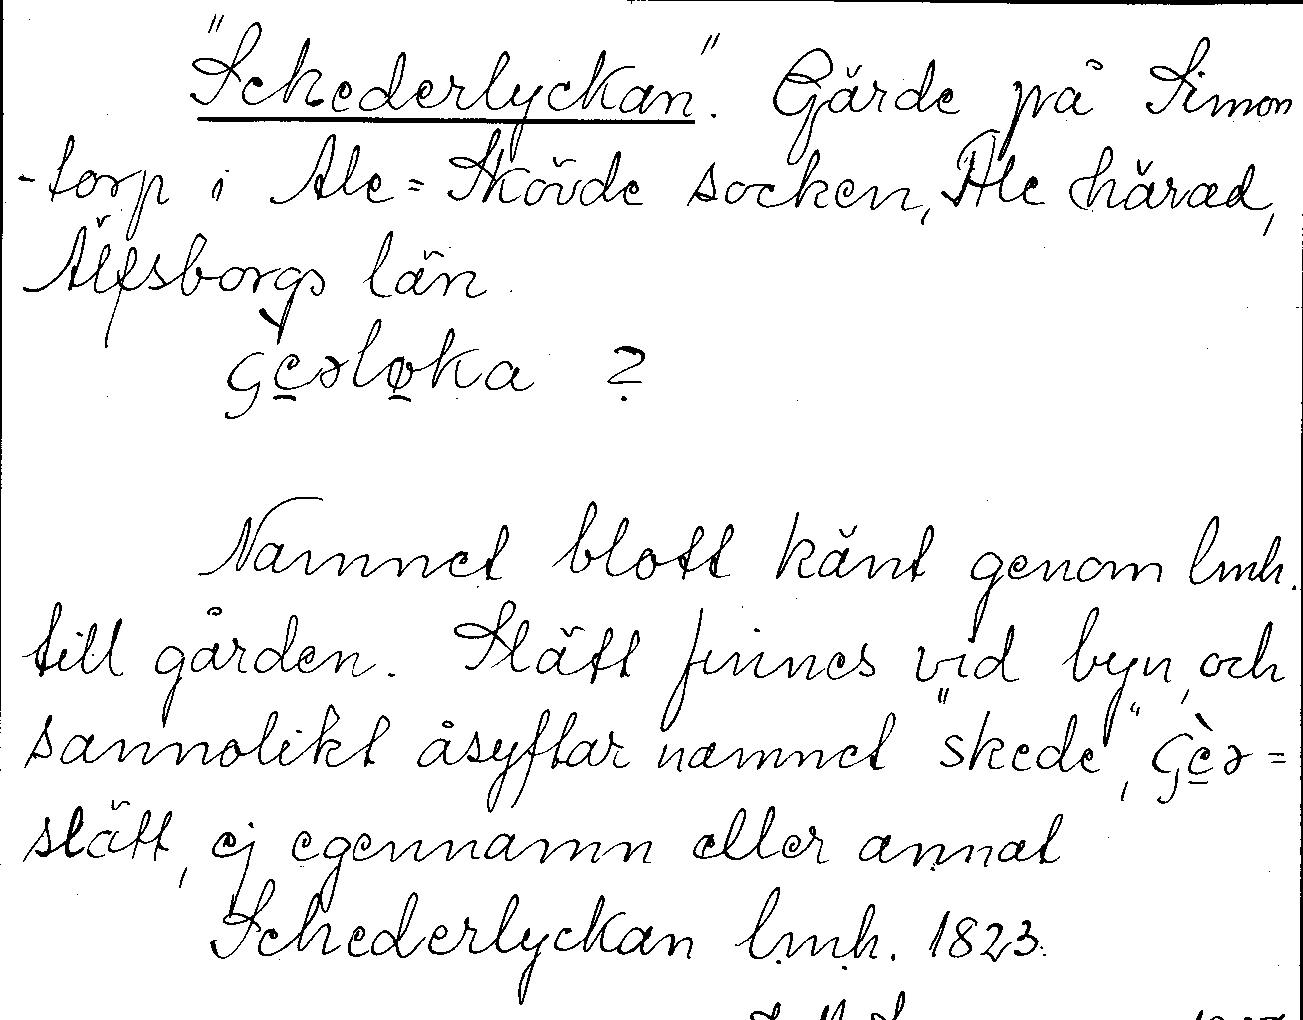 "Schederlyckan". Gärde på Simon
-torp i Ale=Skövde socken, Ale härad,
Älfsborgs län.
ʂe̠̋əlø̠ka ?
Namnet blott känt genom lmh.
till gården. Slätt finnes vid byn, och
sannolikt åsyftar namnet "skede", ʂè̠ə=
slätt, ej egennamn eller annat
Schederlyckan lmh. 1823.